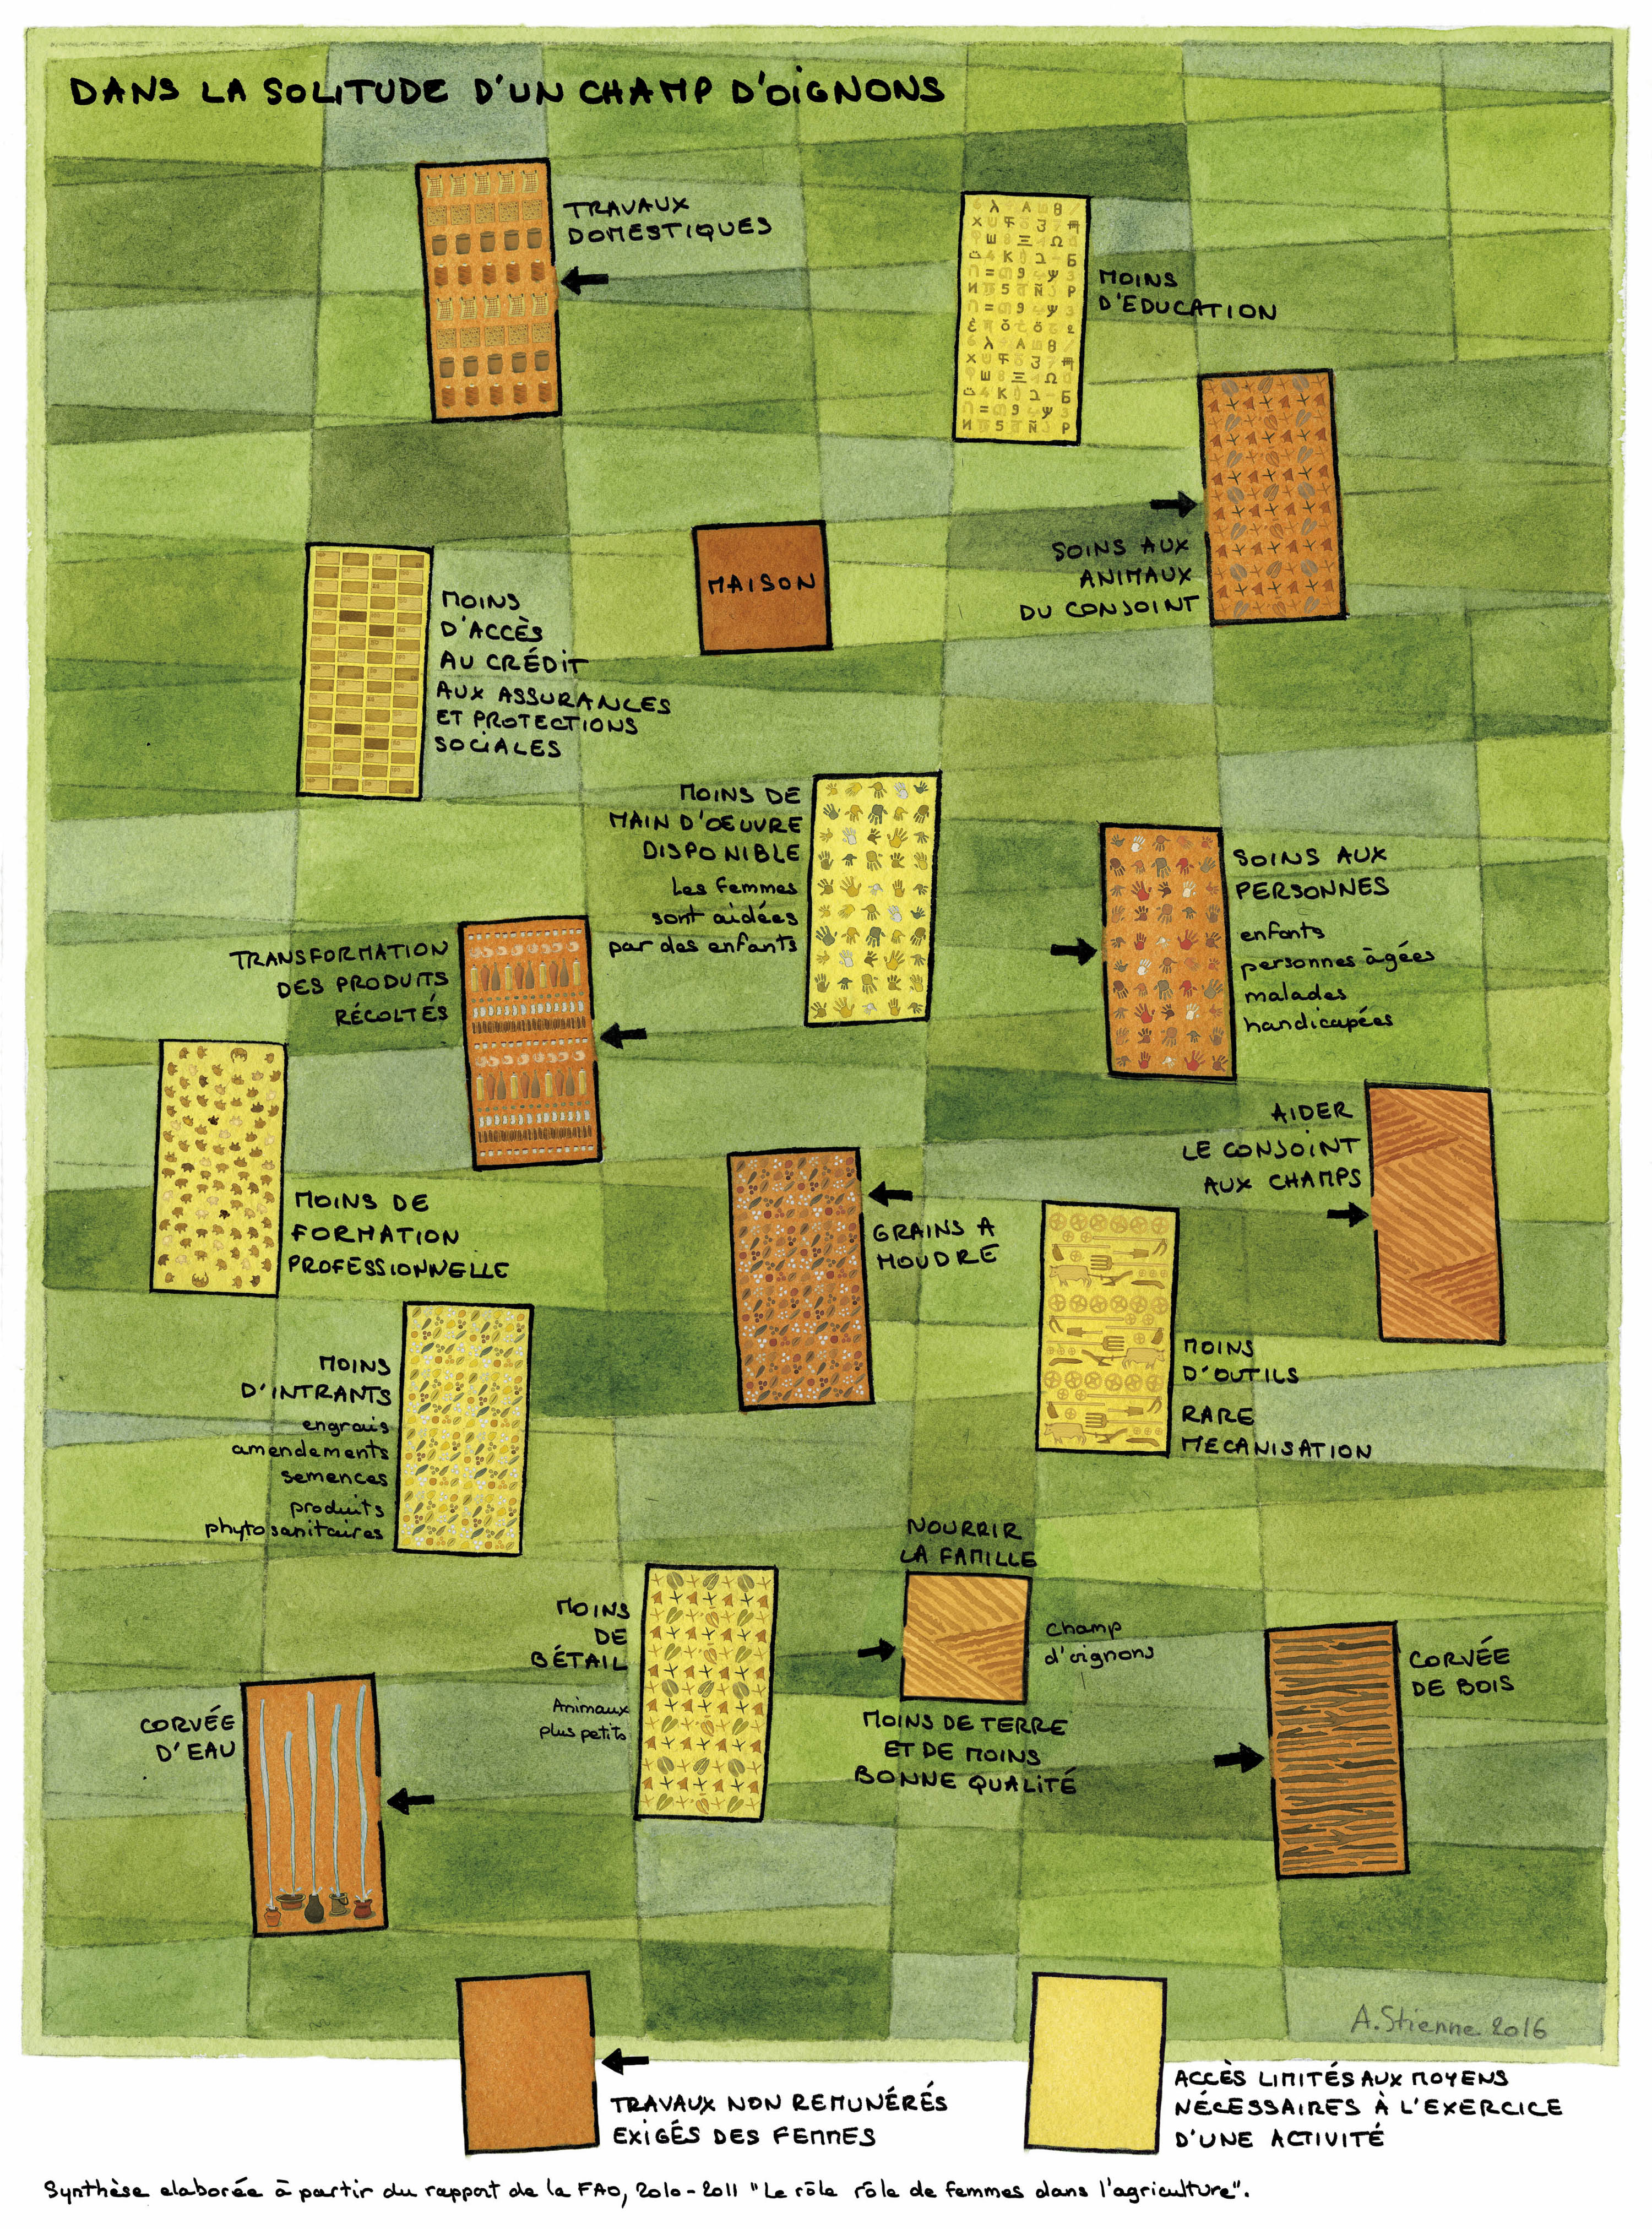 DANS LA SOLITUDE D'UN CHAMP D'OIGNONS
TRAVAUX
DOMESTIQUES
MOINS
D'EDUCATION
SOINS AUX
ANIMAUX
DU CONJOINT
MAISON
MOINS
D'ACCÈS
AU CRÉDIT
AUX ASSURANCES
ET PROTECTIONS
SOCIALES
MOINS DE
MAIN D'OEUVRE
DISPONIBLE
Les femmes
sont aidées
par des enfants
SOINS AUX
PERSONNES
enfants
personnes âgées
malades
handicapées
TRANSFORMATION
DES PRODUITS
RÉCOLTÉS
AIDER
LE CONJOINT
AUX CHAMPS
MOINS DE
FORMATION
PROFESSIONNELLE
GRAINS A
MOUDRE
MOINS
D'OUTILS
RARE
MECANISATION
MOINS
D'INTRANTS
engrais
amendements
semences
produits
phytosanitaires
NOURRIR
LA FAMILLE
champ
d'oignons
MOINS DE TERRE
ET DE MOINS
BONNE QUALITÉ
MOINS
DE
BÉTAIL
Animaux
plus petits
CORVÉE
DE BOIS
CORVÉE
D'EAU
A. Stienne 2016
TRAVAUX NON REMUNÉRÉS
EXIGÉS DES FEMMES
ACCÈS LIMITÉS AUX MOYENS
NÉCESSAIRES À L'EXERCICE
D'UNE ACTIVITÉ
Synthèse elaborée à partir du rapport de la FAO, 2010-2011 "Le rôle rôle de femmes dans l'agriculture".